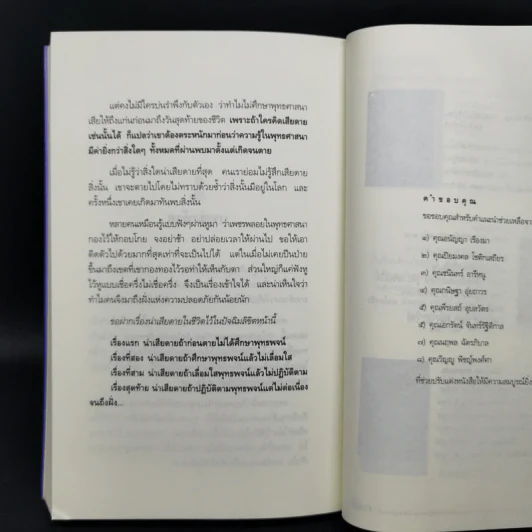 แต่คงไม่มีใครบ่นรำพึงกับตัวเอง ว่าทำไมไม่ศึกษาพุทธศาสนา
เสียให้ถึงแก่นก่อนมาถึงวันสุดท้ายของชีวิต เพราะถ้าใครคิดเสียดาย
เช่นนั้นได้ ก็แปลว่าเขาต้องตระหนักมาก่อนว่าความรู้ในพุทธศาสนา
มีค่ายิ่งกว่าสิ่งใดๆ ทั้งหมดที่ผ่านพบมาตั้งแต่เกิดจนตาย
เมื่อไม่รู้ว่าสิ่งใดน่าเสียดายที่สุด คนเราย่อมไม่รู้สึกเสียดาย
สิ่งนั้น เขาจะตายไปโดยไม่ทราบด้วยซ้ำว่าสิ่งนั้นมีอยู่ในโลก และ
ครั้งหนึ่งเขาเคยเกิดมาทันพบสิ่งนั้น
หลายคนเหมือนรู้แบบฟังๆผ่านหูมา ว่าเพชรพลอยในพุทธศาสนา
กองไว้ให้กอบโกย จงอย่าช้า อย่าปล่อยเวลาให้ผ่านไป ขอให้เอา
ติดตัวไปด้วยมากที่สุดเท่าที่จะเป็นไปได้ แต่ในเมื่อไม่เคยปีนป่าย
ขึ้นมาถึงเขตที่เขากองทองไว้รอท่าให้เห็นกับตา ส่วนใหญ่ก็แค่ฟังหู
ไว้หูแบบเชื่อครึ่งไม่เชื่อครึ่ง จึงเป็นเรื่องเข้าใจได้ และน่าเห็นใจว่า
ทำไมคนจึงมาถึงฝั่งแห่งความปลอดภัยกันน้อยนัก
ขอฝากเรื่องน่าเสียดายในชีวิตไว้ในปัจฉิมลิขิตหน้านี้
เรื่องแรก น่าเสียดายถ้าก่อนตายไม่ได้ศึกษาพุทธพจน์
เรื่องที่สอง น่าเสียดายถ้าศึกษาพุทธพจน์แล้วไม่เลื่อมใส
เรื่องที่สาม น่าเสียดายถ้าเลื่อมใสพุทธพจน์แล้วไม่ปฏิบัติตาม
เรื่องสุดท้าย น่าเสียดายถ้าปฏิบัติตามพุทธพจน์แต่ไม่ต่อเนื่อง
จนถึงฝั่ง...
คำขอบคุณ
ขอขอบคุณสำหรับคำแนะนำช่วยเหลือจาก
๑) คุณอนัญญา เรืองมา
๒) คุณปิยมงคล โชติกเสถียร
๓) คุณชนินทร์ อารีหนู
๔) คุณานิษฐา อุ่ยถาวร
๕) คุณพีรยสถ์ อุบลวัตร
๖) คุณเอกรัตน์ จันทร์รัฐิติกาล
๗) คุณนฤพล ฉัตรภิบาล
๘) คุณวิญญู พิชญ์พงศ์ศา
ที่ช่วยปรับแต่งหนังสือให้มีความสมบูรณ์ยิ่ง